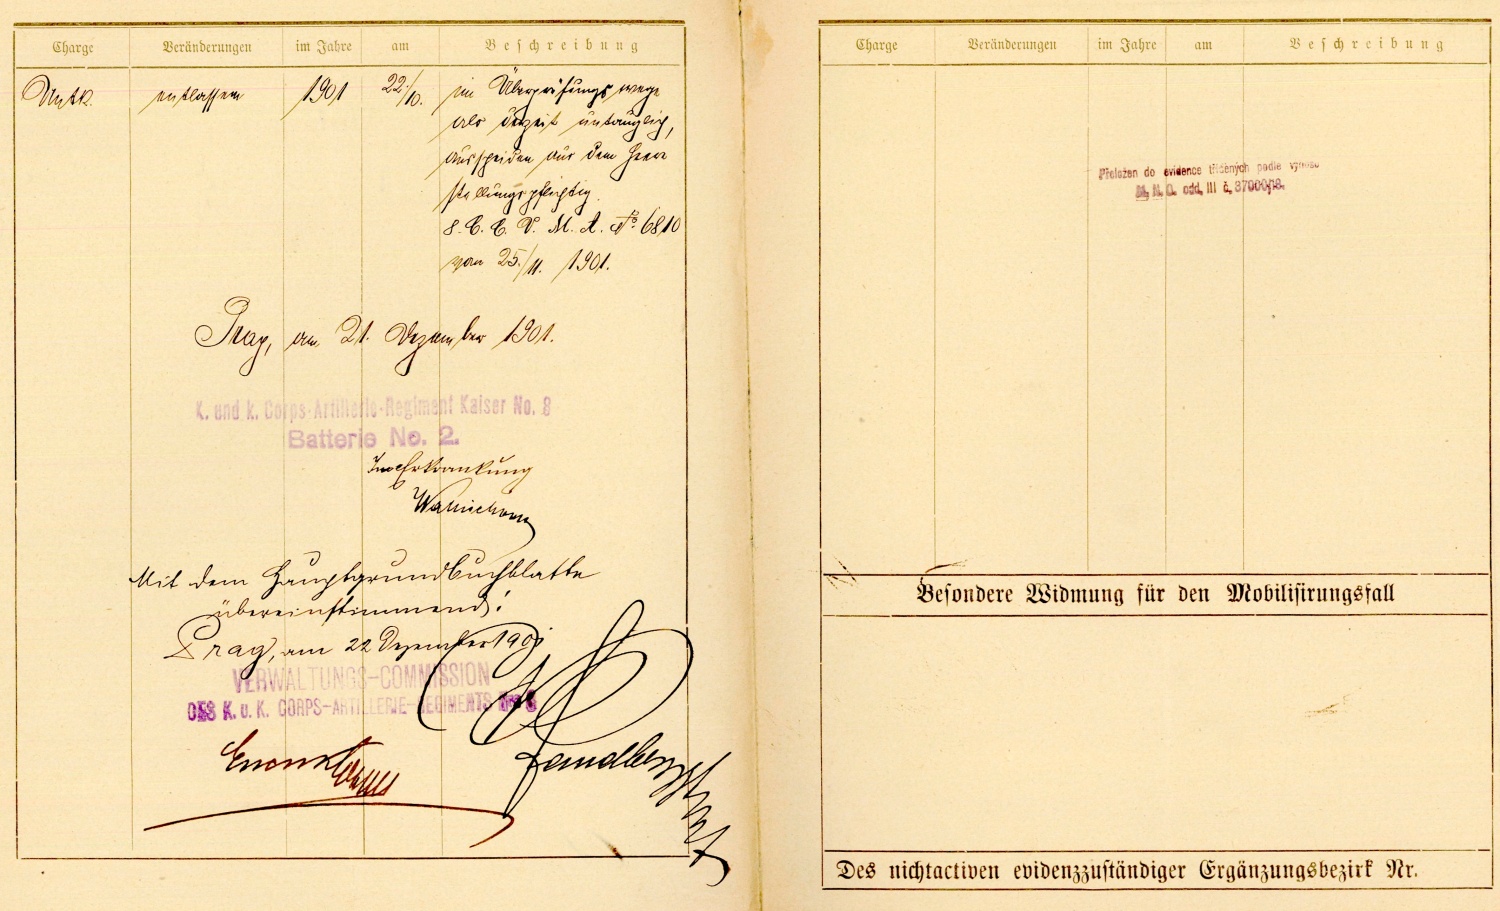 Charge Veränderungen im Jahre am Beschreibung
Untk. entlassen 1901 22./10. im Überprüfungswege
als derzeit untauglich,
aus dem Heere
stellungspflichtig.
M. A. No 6810
vom 25./11. 1901.
Prag, am 21. Dezember 1901.
K. und k. Corps-Artillerie-Regiment Kaiser No. 8
Batterie No. 2.
Erkrankung
Mit dem Hauptgrundbuchblatte
übereinstimmend!
Prag, am 22 Dezember 1901
VERWALTUNGS-COMMISSION
DES K. u. K. CORPS-ARTILLERIE-REGIMENTS Nro 8
Charge Veränderungen im Jahre am Beschreibung
Přeložen do evidence tříděných podle výnosu
M. N. O. odd. III č.
Besondere Widmung für den Mobilisirungsfall
Des nichtactiven evidenzzuständiger Ergänzungsbezirk Nr.